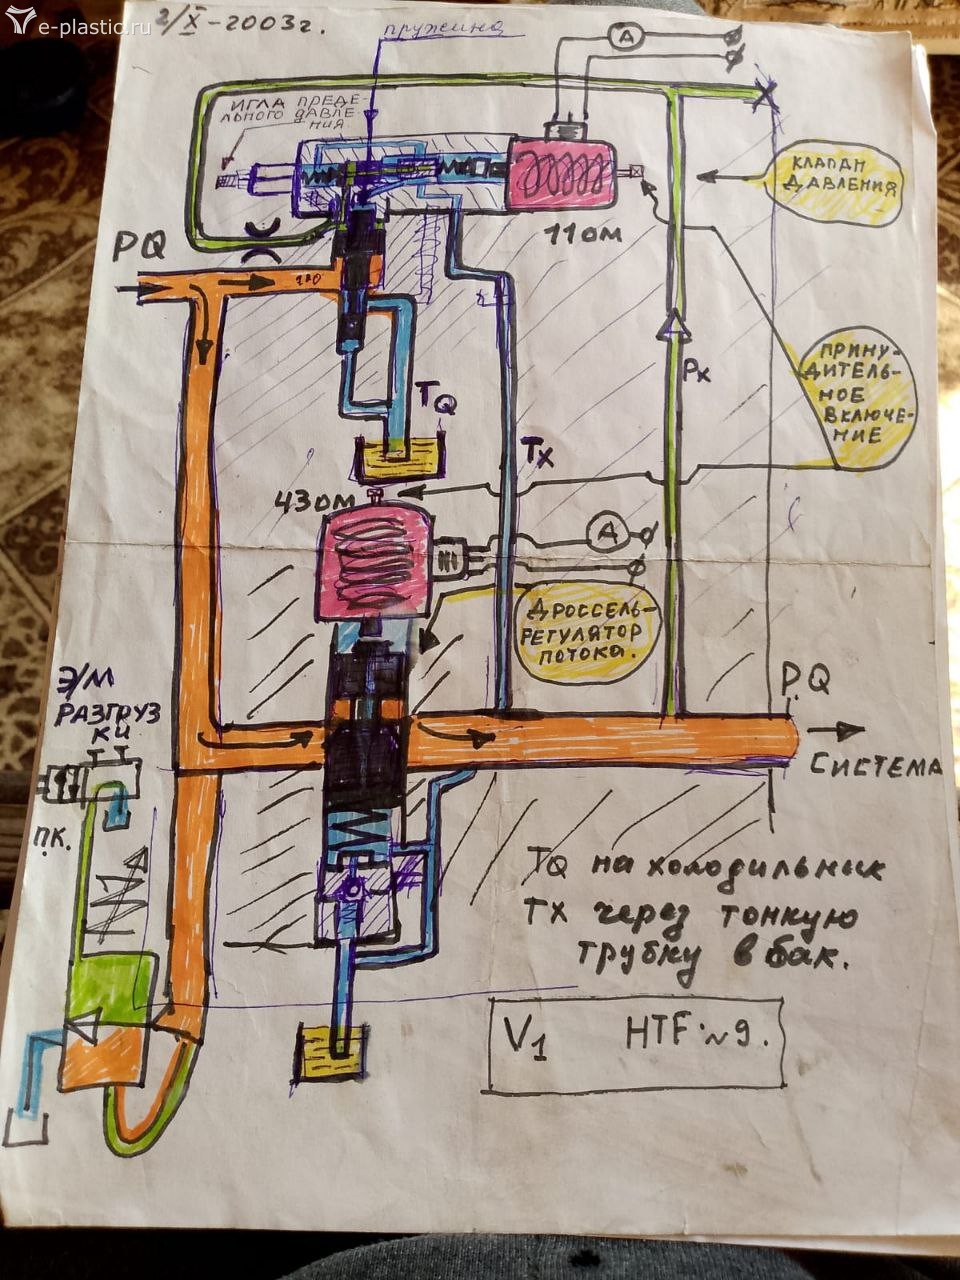 e-plastic.ru
2/X-2003г.
пружина
А
ИГЛА ПРЕДЕ-
ЛЬНОГО ДАВЛЕ-
НИЯ
КЛАПАН
ДАВЛЕНИЯ
11 ОМ
PQ
ПРИНУ-
ДИТЕЛЬ-
НОЕ
ВКЛЮЧЕ-
НИЕ
Px
TQ
Tx
43 ОМ
А
ДРОССЕЛЬ-
РЕГУЛЯТОР
ПОТОКА.
Э/М
РАЗГРУЗ
КИ
P.Q
СИСТЕМА
П.К.
TQ на холодильник
TX через тонкую
трубку в бак.
V1 HTF №9.